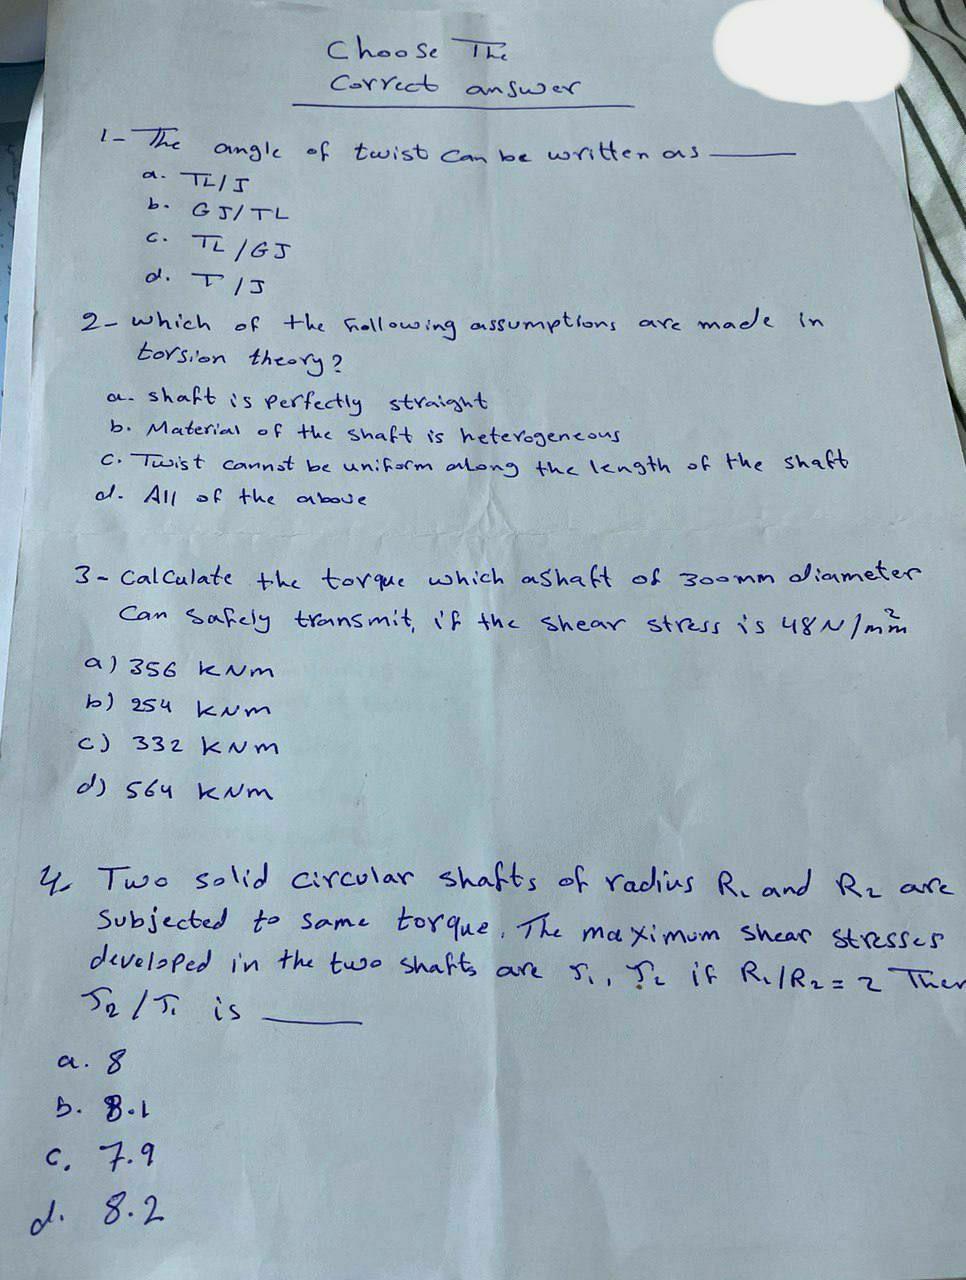 Choose The
Correct answer
1- The angle of twist can be written as ____
a. TL/J
b. GJ/TL
c. TL/GJ
d. T/J
2- which of the following assumptions are made in
torsion theory?
a. shaft is perfectly straight
b. Material of the shaft is heterogeneous
c. Twist cannot be uniform along the length of the shaft
d. All of the above
3- Calculate the torque which a shaft of 300mm diameter
Can safely transmit, if the shear stress is 48N/mm²
a) 356 kNm
b) 254 kNm
c) 332 kNm
d) 564 kNm
4. Two solid circular shafts of radius R₁ and R₂ are
Subjected to same torque. The maximum shear stresses
developed in the two shafts are τ₁, τ₂ if R₁/R₂ = 2 Then
τ₂/τ₁ is ____
a. 8
b. 8.1
c. 7.9
d. 8.2